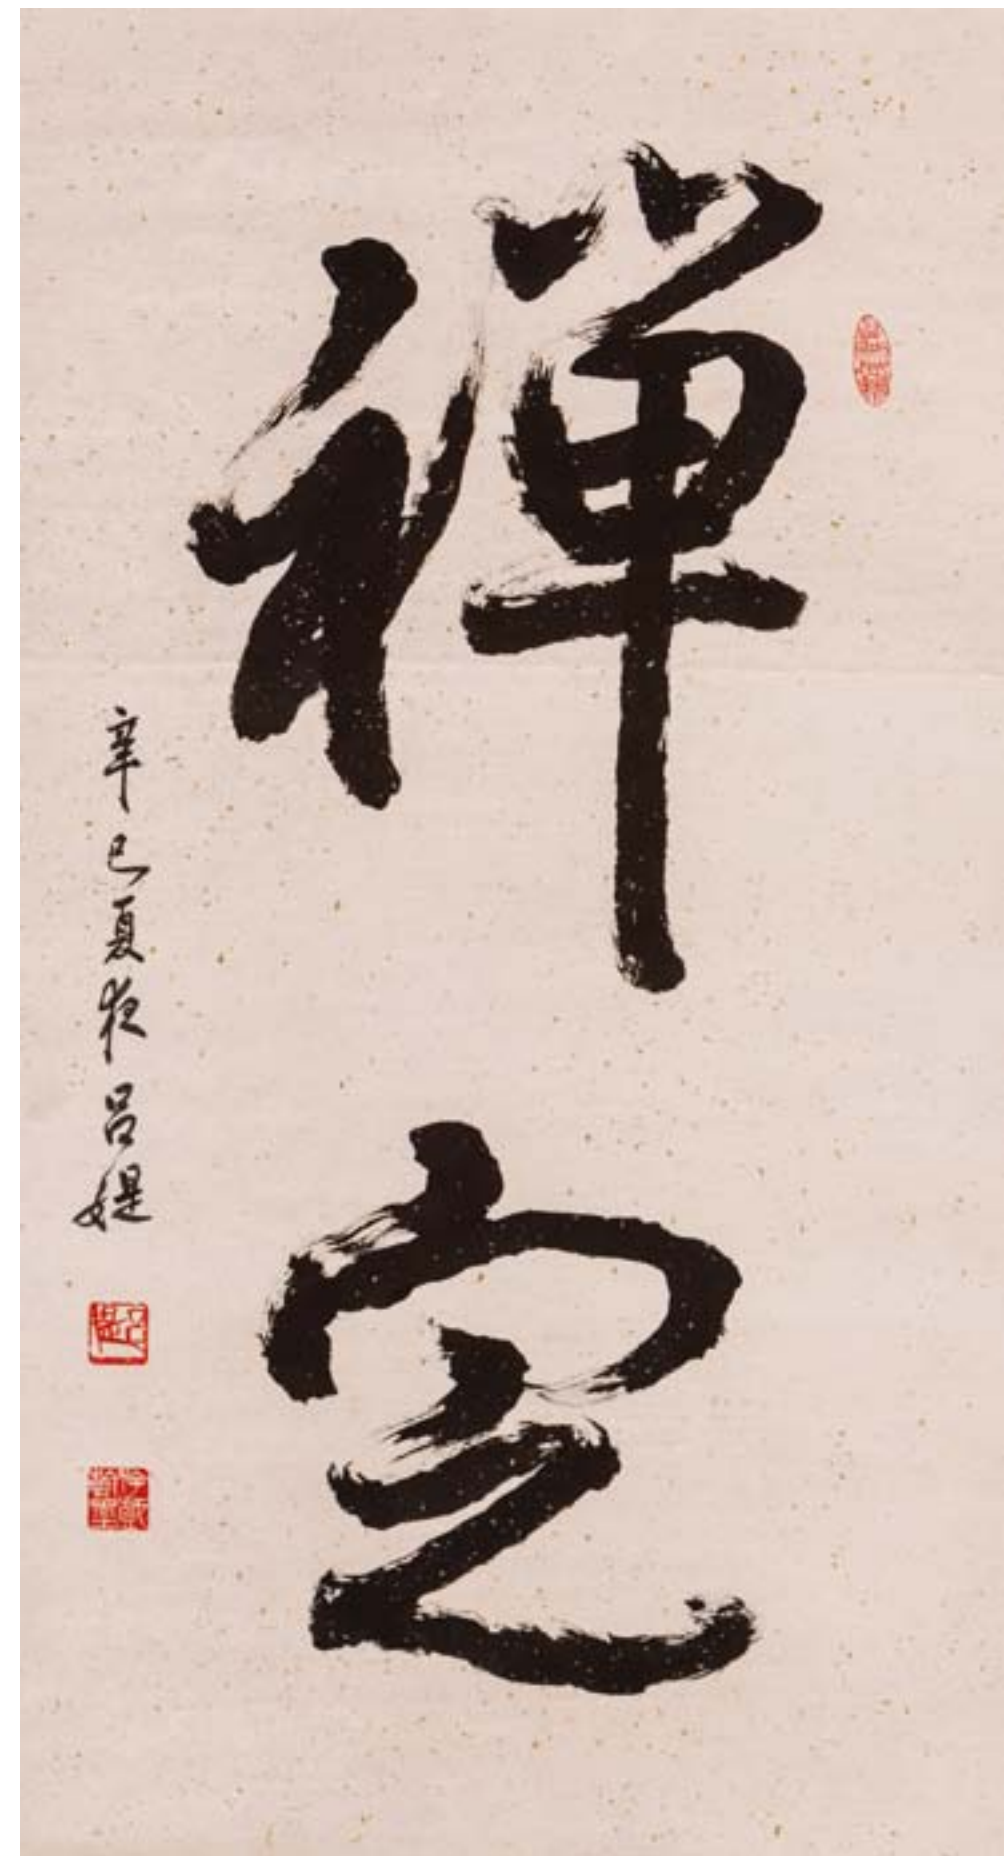 禅定
辛巳夏夜吕媞